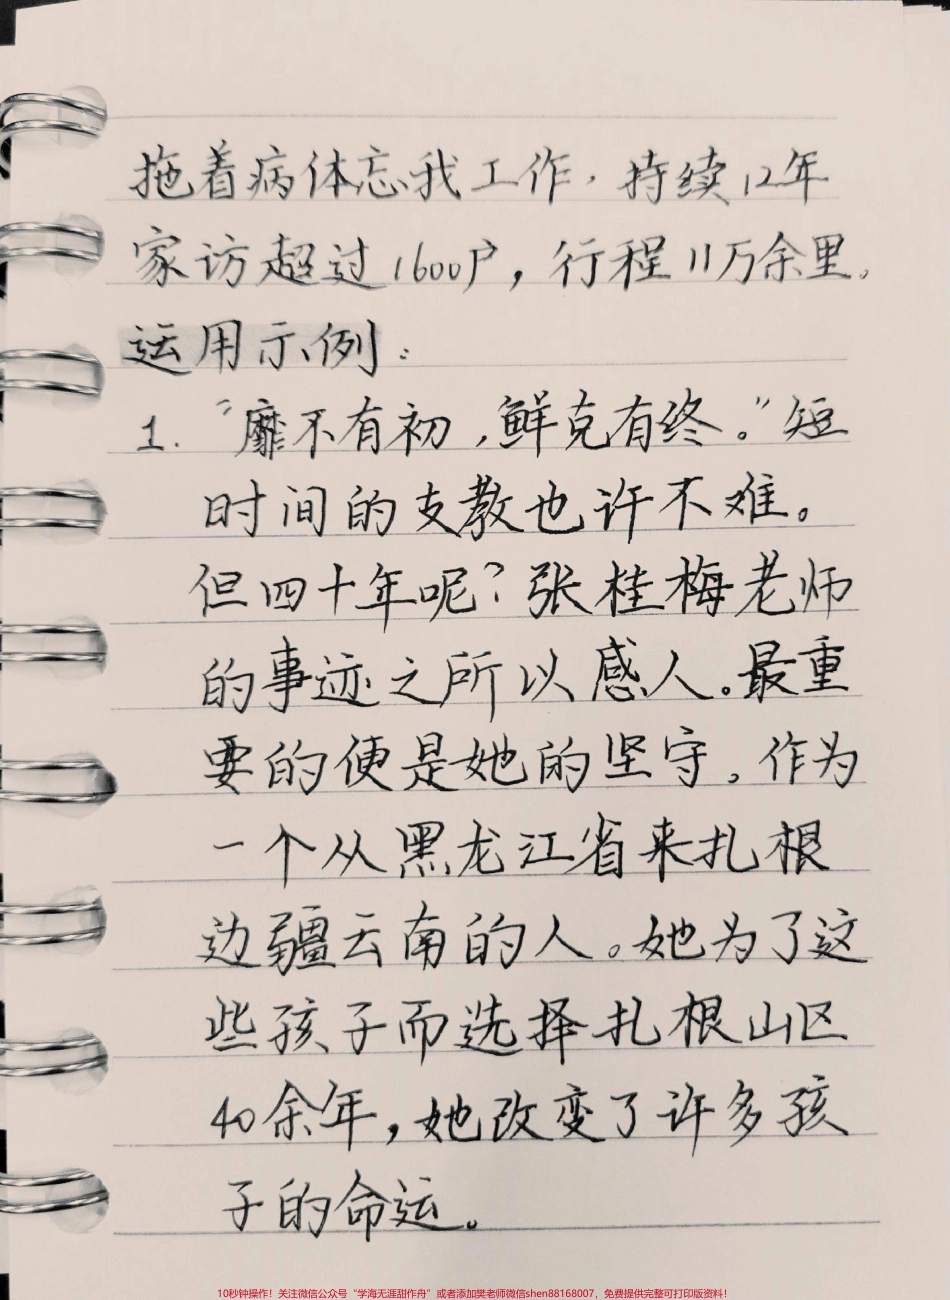 拖着病体忘我工作，持续12年
家访超过1600户，行程11万余里。
运用示例：
1. “靡不有初，鲜克有终。”短
时间的支教也许不难。
但四十年呢？张桂梅老师
的事迹之所以感人。最重
要的便是她的坚守。作为
一个从黑龙江省来扎根
边疆云南的人。她为了这
些孩子而选择扎根山区
40余年，她改变了许多孩
子的命运。
10秒钟操作！关注微信公众号“学海无涯甜作舟”或者添加樊老师微信shen88168007，免费提供完整可打印版资料！